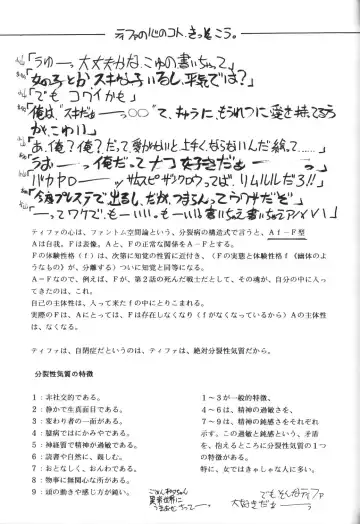 ティファの心のコト、きっとこう。
「うゆーっ大丈夫かな、こゆの書いちゃって」
「女の子とかスキな子いるし、平気では?」
「でも コワイかも」
「俺は“スキだぁーっ○○”て、キャラに、もうれつに愛を持ってる方が、こわい」
「あ、俺?俺?だって愛がないと上手くならないんだ絵って……」
「うおーっ俺だってナコ好きだぁーっ
「バカヤローっサムスピザンクロウってば、リムルルだろ!?」
「今度プレステで出るし、だが、つまるんってウワサだぞ」
「ーってワケで、もーいい、もーいい書いちゃえ書いちゃえアハハハ!」
ティファの心は、ファントム空間論という、分裂病の構造式で言うと、Ａｆ-Ｆ型
Ａは自我、Ｆは表像。ＡとＦの正常な関係をＡ－Ｆとする。
Ｆの体験性格(ｆ)は、次第に知覚の性質に近付き、(Ｆの実態と体験性格ｆ《幽体のようなもの》が、分離する)ついに知覚と同等になる。
Ａ－Ｆなので、例えば、Ｆが、第２話の死んだ戦士だとして、その魂が、自分の中に入ってきたのは、これ。
自己の主体性は、入って来たｆの中にとりこまれる。
実際のＦは、Ａにとっては、Ｆは存在しなくなり(ｆがなくなっているから)Ａの主体性は、なくなる。
ティファは、自閉症だというのは、ティファは、絶対分裂性気質だから。
分裂性気質の特徴
１：非社交的である。
２：静かで生真面目である。
３：変わり者の一面がある。
４：臆病ではにかみやである。
５：神経質で精神が過敏である。
６：読書や自然に、親しむ。
７：おとなしく、おんわである。
８：物事に無関心な所がある。
９：頭の動きや感じ方が鈍い。
１～３が一般的特徴、
４～６は、精神の過敏さを、
７～９は、精神の鈍感さをそれぞれ示す。この過敏と鈍感という、矛盾を、抱えるところに分裂性気質の１つの特徴がある。
特に、女ではきゃしゃな人に多い。
でもそんなティファ
大好きだぁーっ